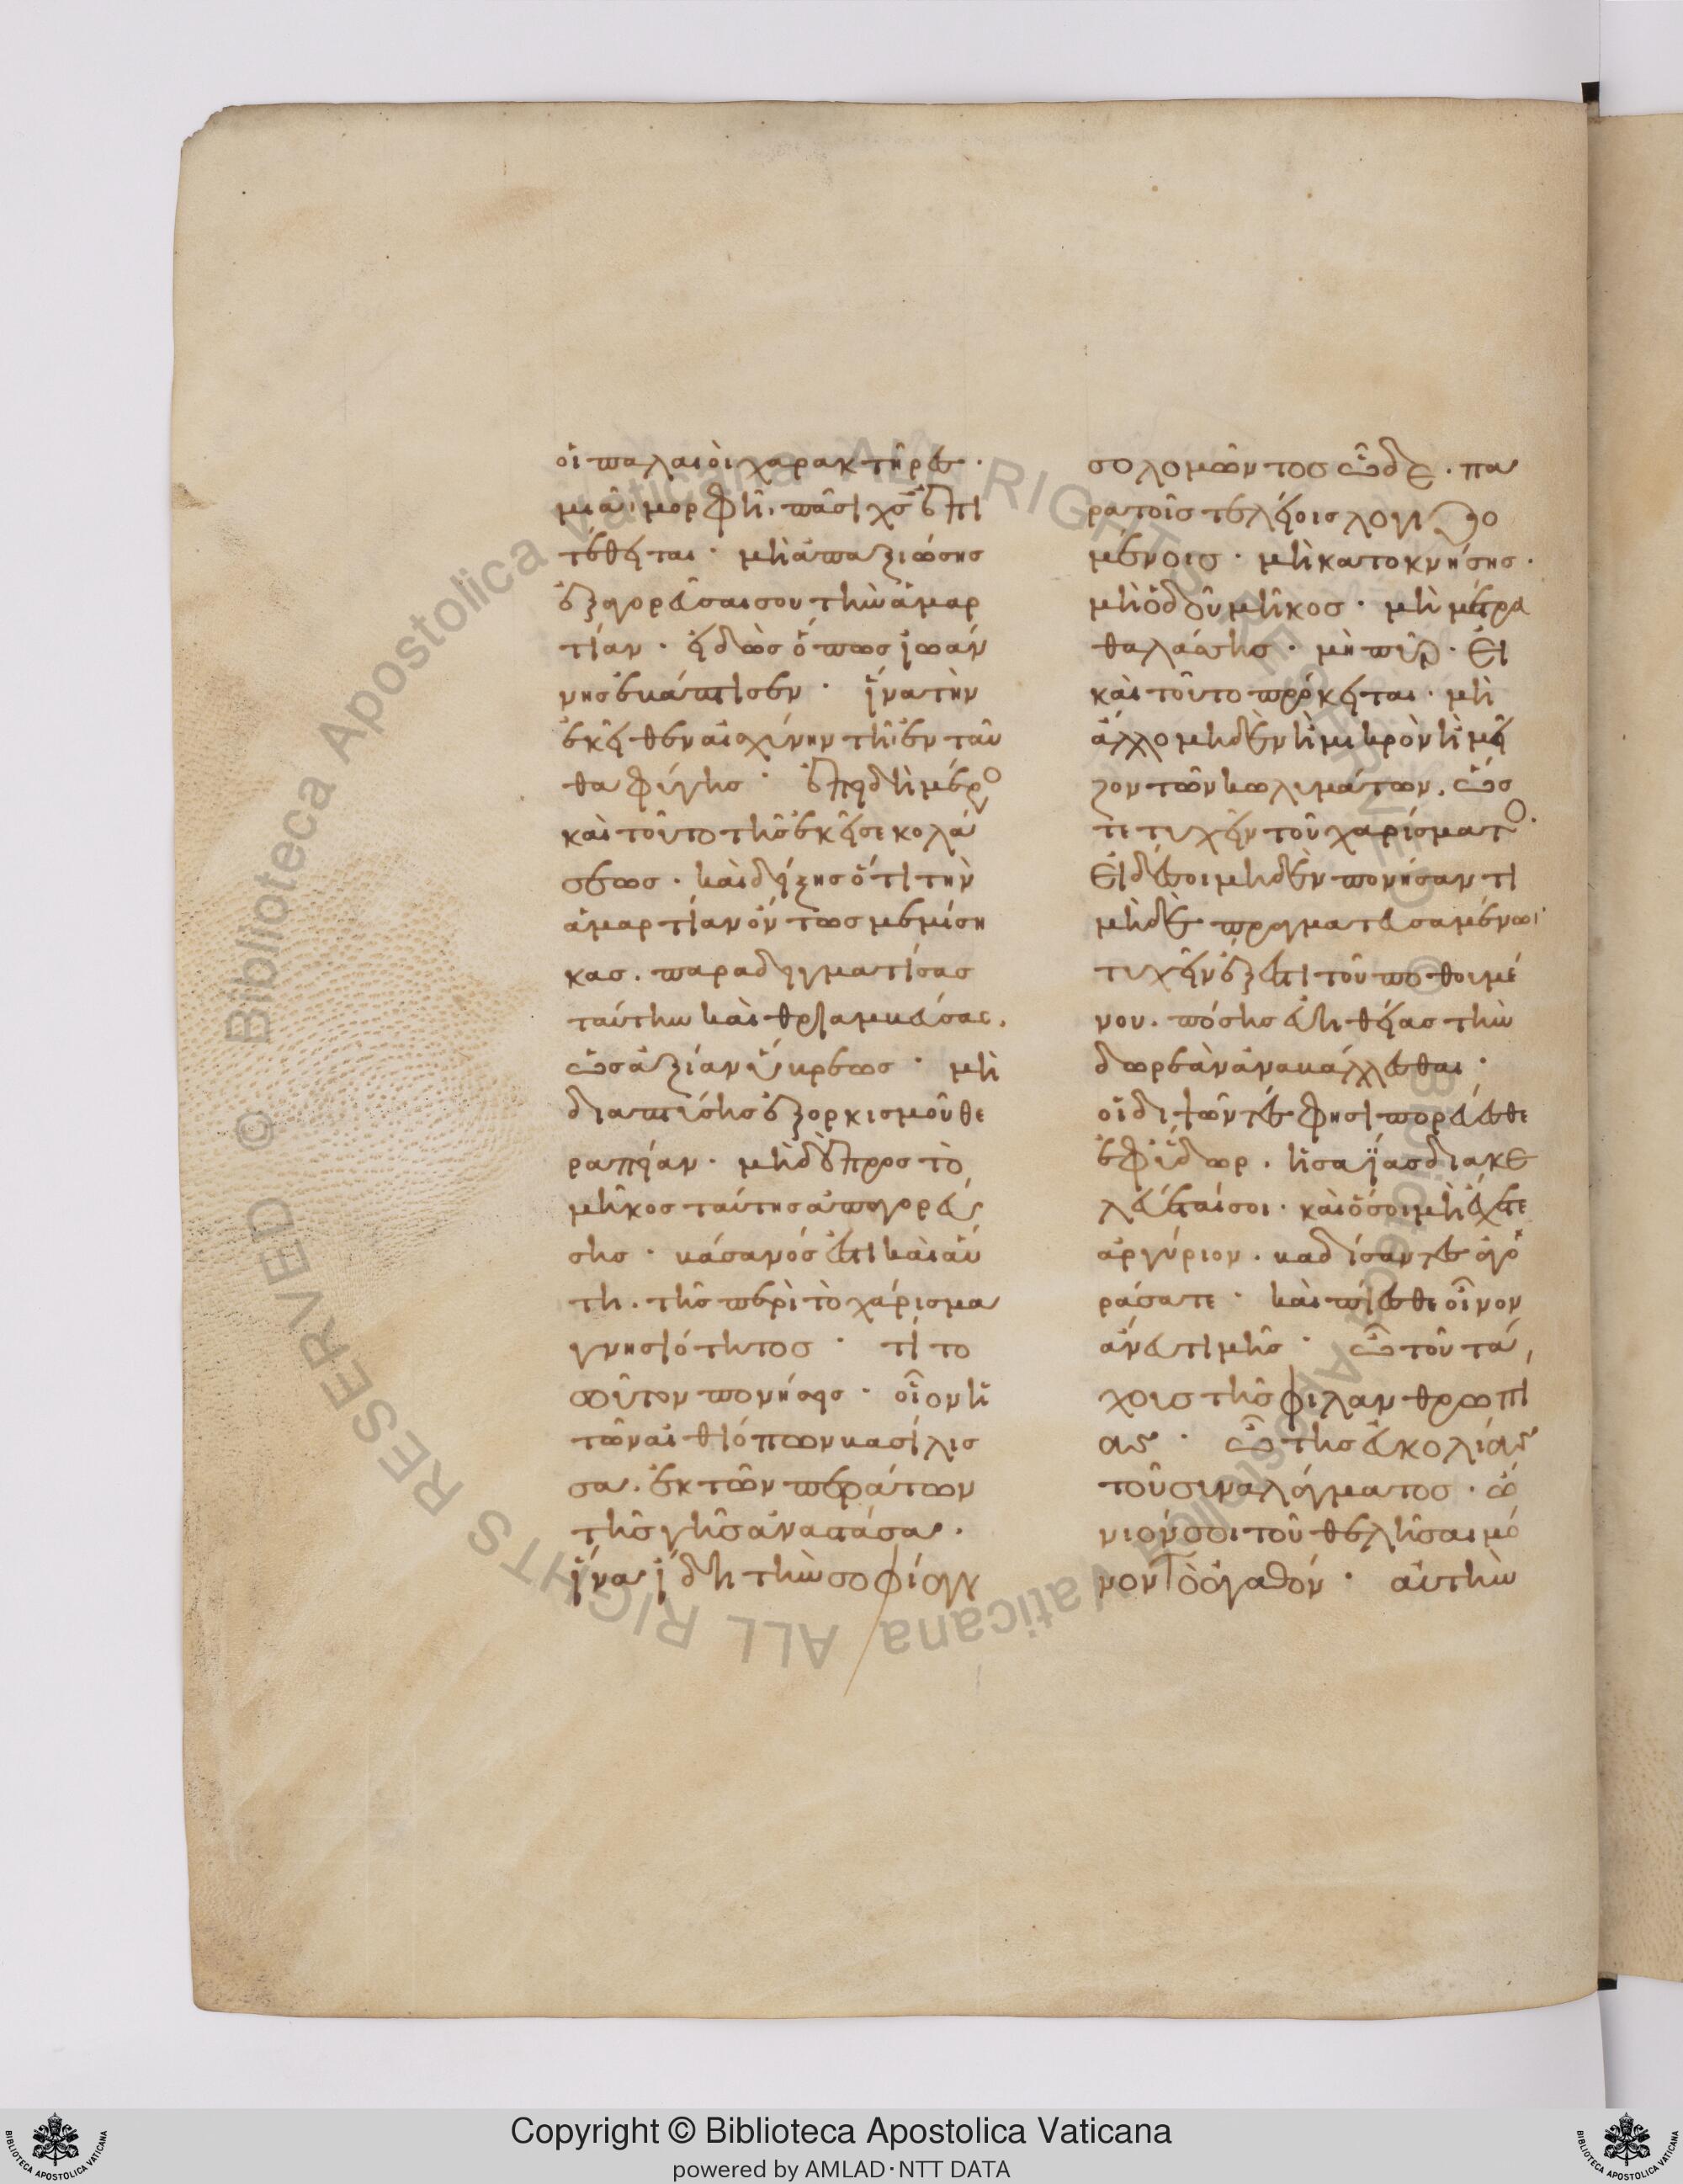 οἱ παλαιοὶ χαρακτῆρες·
μιᾷ μορφῆι πᾶσι χς ἐπι
τέθειται· μὴ ἀπαξιώσης
ἐξαγορεῦσαι σου τὴν ἁμαρ
τίαν· εἰδὼς ὅπως ἰωάν
νης ἐβάπτισεν· ἵνα τὴν
ἐκεῖθεν αἰσχύνην τῆι ἐνταῦ
θα φύγης· ἐπειδὴ μέρο
καὶ τοῦτο τῆς ἐκεῖσε κολά
σεως· καὶ δείξης ὅτι τὴν
ἁμαρτίαν ὄντως μεμίση
κας· παραδειγματίσας
ταύτην καὶ θριαμβεύσας·
ὡς ἀξίαν ὕβρεως· μὴ
διαπτύσης ἐξορκισμοῦ θε
ραπείαν· μὴδὲ προς τὸ
μῆκος ταύτης ἀπαγορεύ
σης· βάσανός ἐστι καὶ αὕ
τη· τῆς περὶ τὸ χάρισμα
γνησιότητος· τί το
σοῦτον πονήσεις· οἷον ἡ
τῶν αἰθιόπων βασίλισ
σα· ἐκ τῶν περάτων
τῆς γῆς ἀναστᾶσα·
ἵνα ἴδη τὴν σοφίαν
σολομῶντος ὧδε· πα
ρα τοῖς τελείοις λογιζο
μένοις· μὴ κατοκνήσης·
μὴ ὁδοῦ μῆκος· μὴ μέτρα
θαλάσσης· μὴ πῦρ· εἰ
καὶ τοῦτο πρόκειται· μὴ
ἄλλο μηδὲν ἢ μικρὸν ἢ μεῖ
ζον τῶν κωλυμάτων· ὥσ
τε τυχεῖν τοῦ χαρίσματο·
εἰ δέ σοι μηδὲν πονήσαντι
μὴδὲ πραγματευσαμένωι
τυχεῖν ἔξεστι τοῦ ποθουμέ
νου· πόσης εὐηθείας τὴν
δωρεὰν ἀναβάλλεσθαι·
οἱ διψῶντες φησὶ πορεύεσθε
ἐφ' ὕδωρ· ἡσαΐας διακε
λεύεταί σοι· καὶ ὅσοι μὴ ἔχετε
ἀργύριον· βαδίσαντες ἀγο
ράσατε· καὶ πίεσθε οἶνον
ἄνευ τιμῆς· ὢ τοῦ τά
χους τῆς φιλανθρωπί
ας· ὢ τῆς εὐκολίας
τοῦ συναλάγματος· ὤ
νιόν σοι τοῦ θελῆσαι μό
νον τὸ ἀγαθόν· αὐτὴν
Copyright © Biblioteca Apostolica Vaticana
powered by AMLAD·NTT DATA